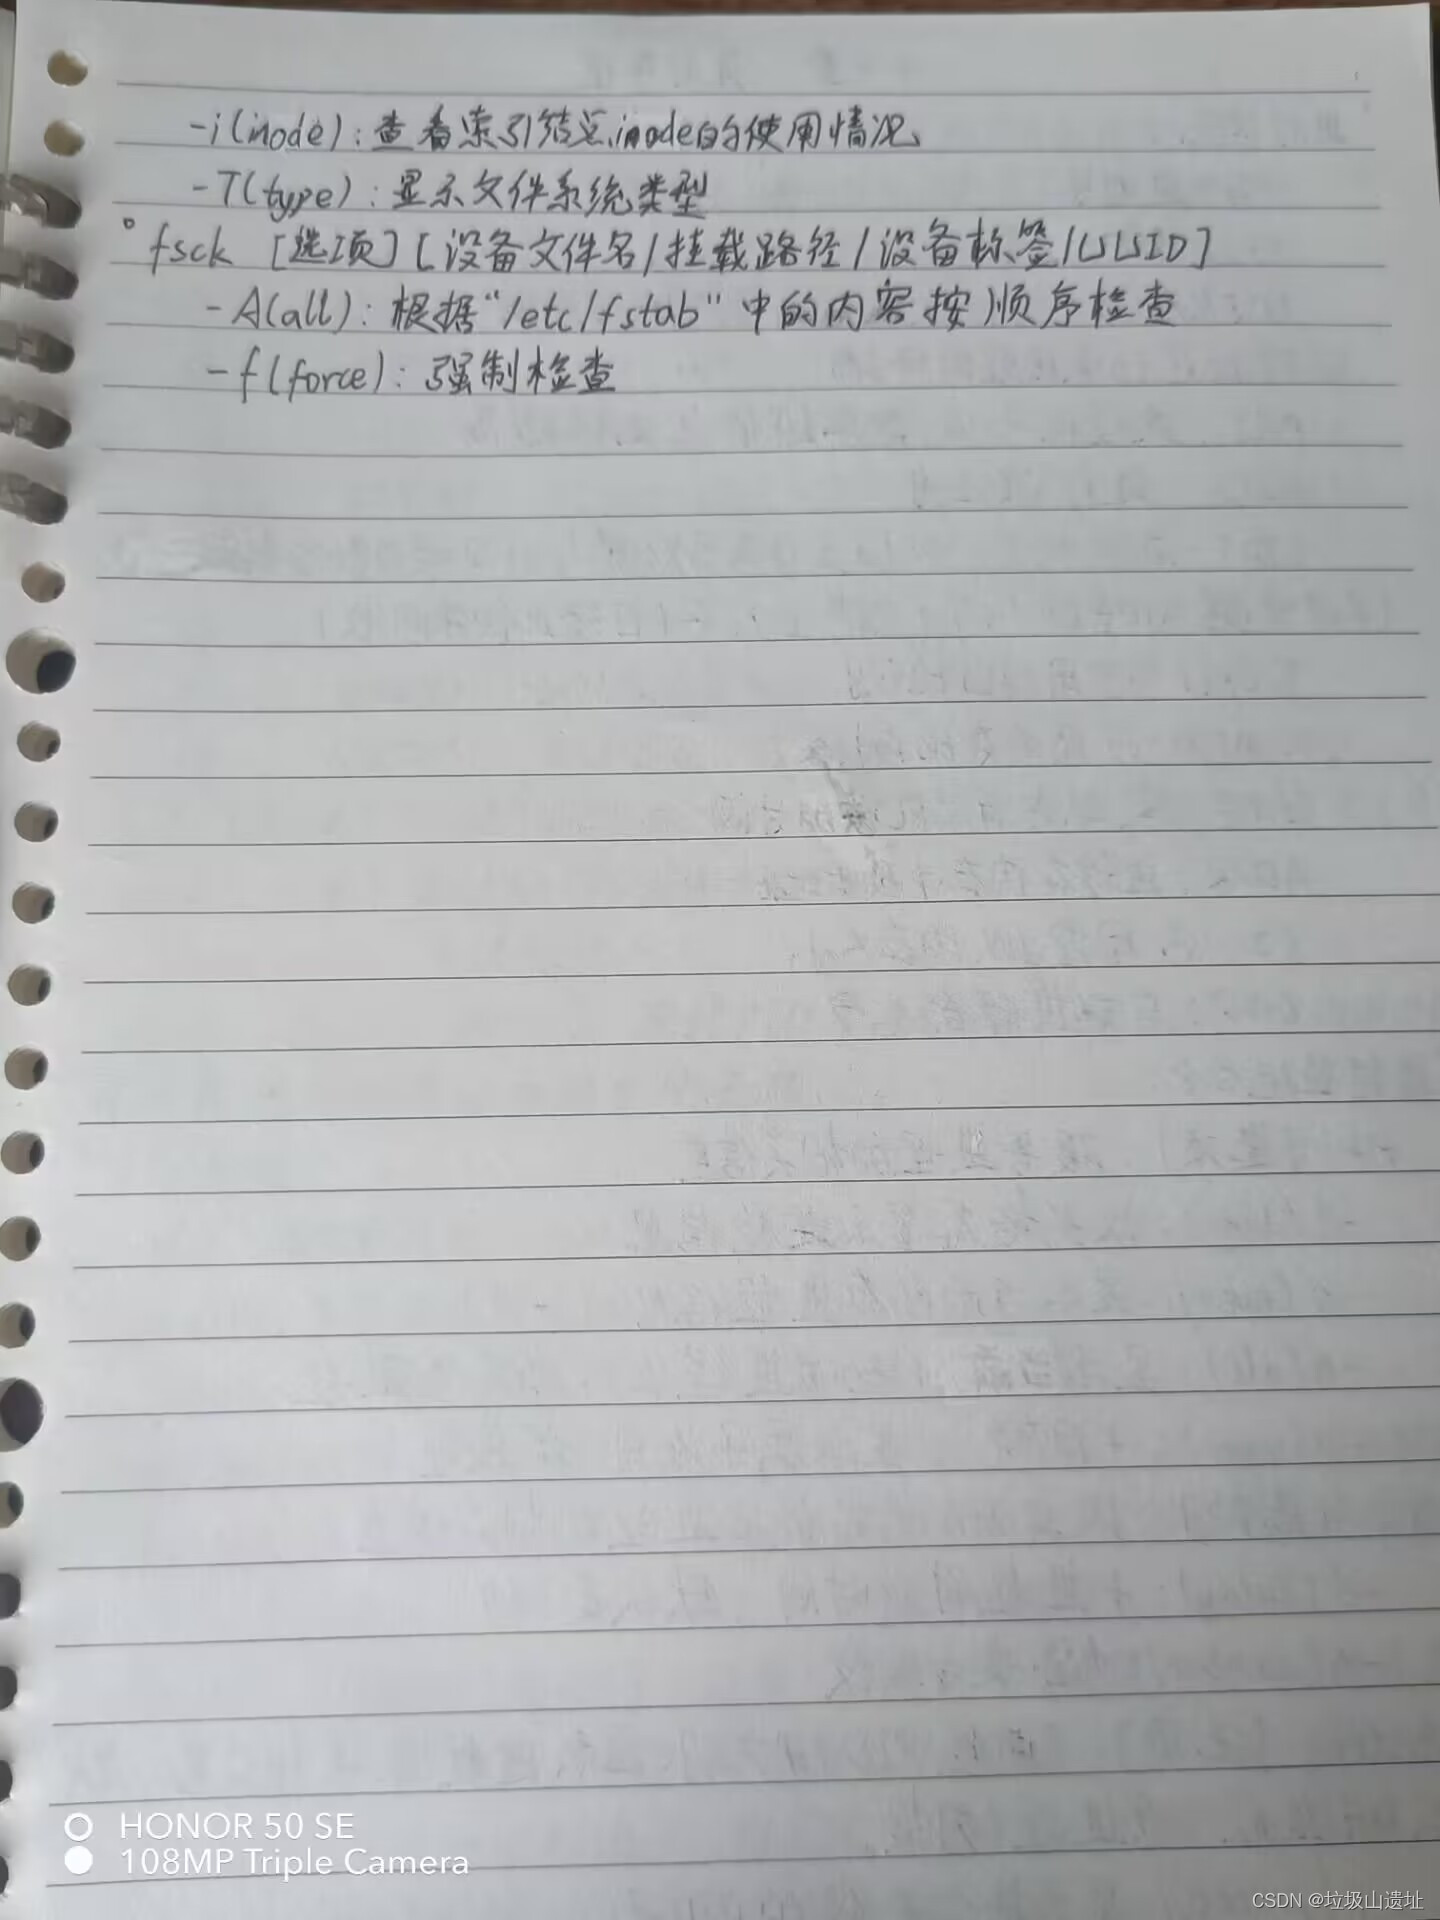 -i(inode)：查看索引结点inode的使用情况
-T(type)：显示文件系统类型
° fsck [选项] [设备文件名/挂载路径/设备标签/UUID]
-A(all)：根据“/etc/fstab”中的内容按顺序检查
-f(force)：强制检查
HONOR 50 SE
108MP Triple Camera
CSDN @垃圾山遗址